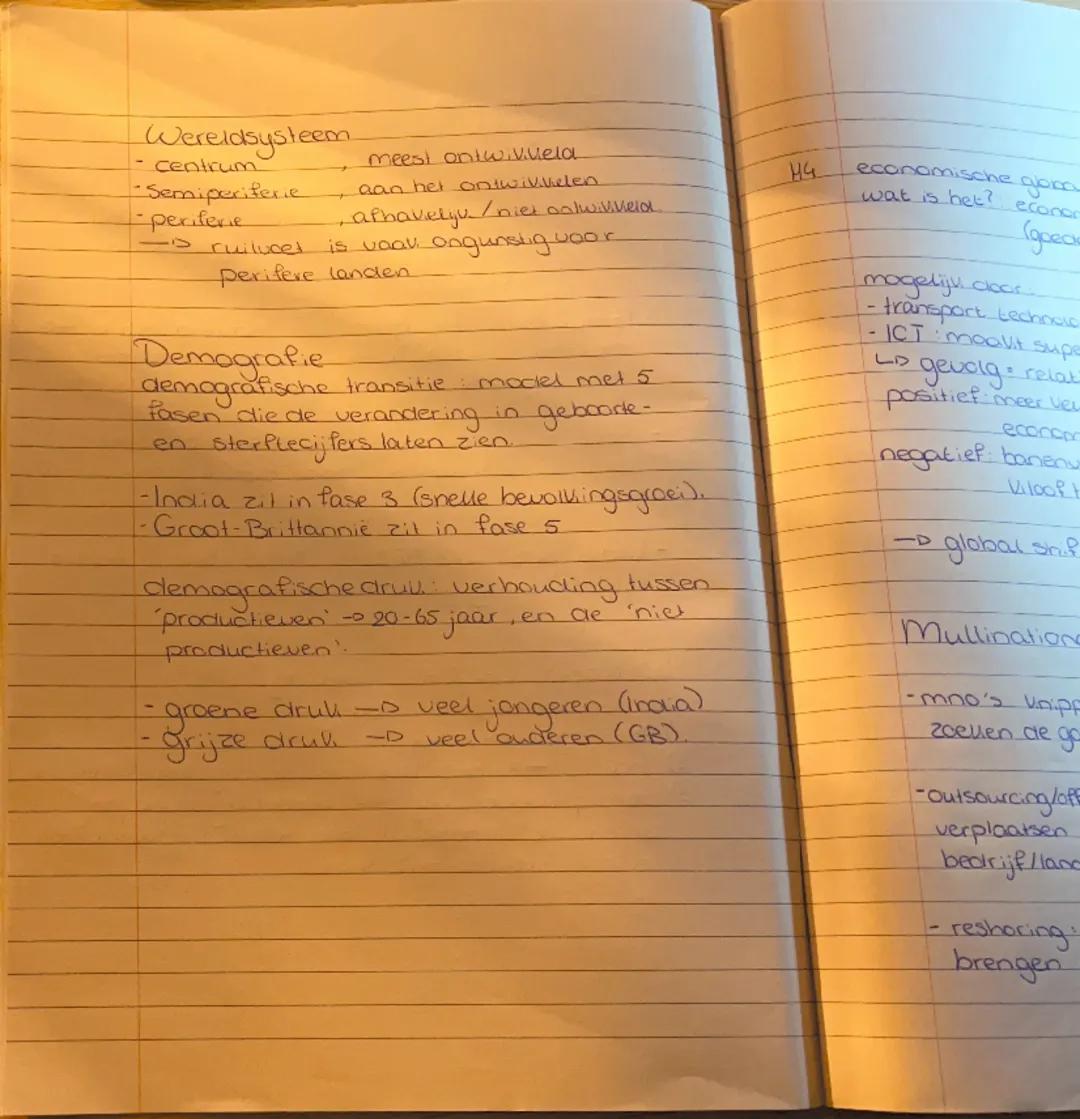 Wereldsysteem
- centrum , meest ontwikkeld
- Semiperiferie , aan het ontwikkelen
- periferie , afhankelijk / niet ontwikkeld
→ ruilvoet is vaak ongunstig voor
perifere landen
Demografie
demografische transitie : model met 5
fasen die de verandering in geboorte-
en sterftecijfers laten zien.
- India zit in fase 3 (snelle bevolkingsgroei).
- Groot-Brittannië zit in fase 5
demografische druk : verhouding tussen
'productieven' → 20-65 jaar, en de 'niet
productieven'.
- groene druk → veel jongeren (India)
- grijze druk → veel ouderen (GB).
H4 economische
wat is het?
mogelijk door:
- transport
- ICT : maakt
↳ gevolg =
positief: meer
negatief:
kloof
→ global
- mno's
zoeken de
- outsourcing/
verplaatsen
bedrijf/
- reshoring :
brengen